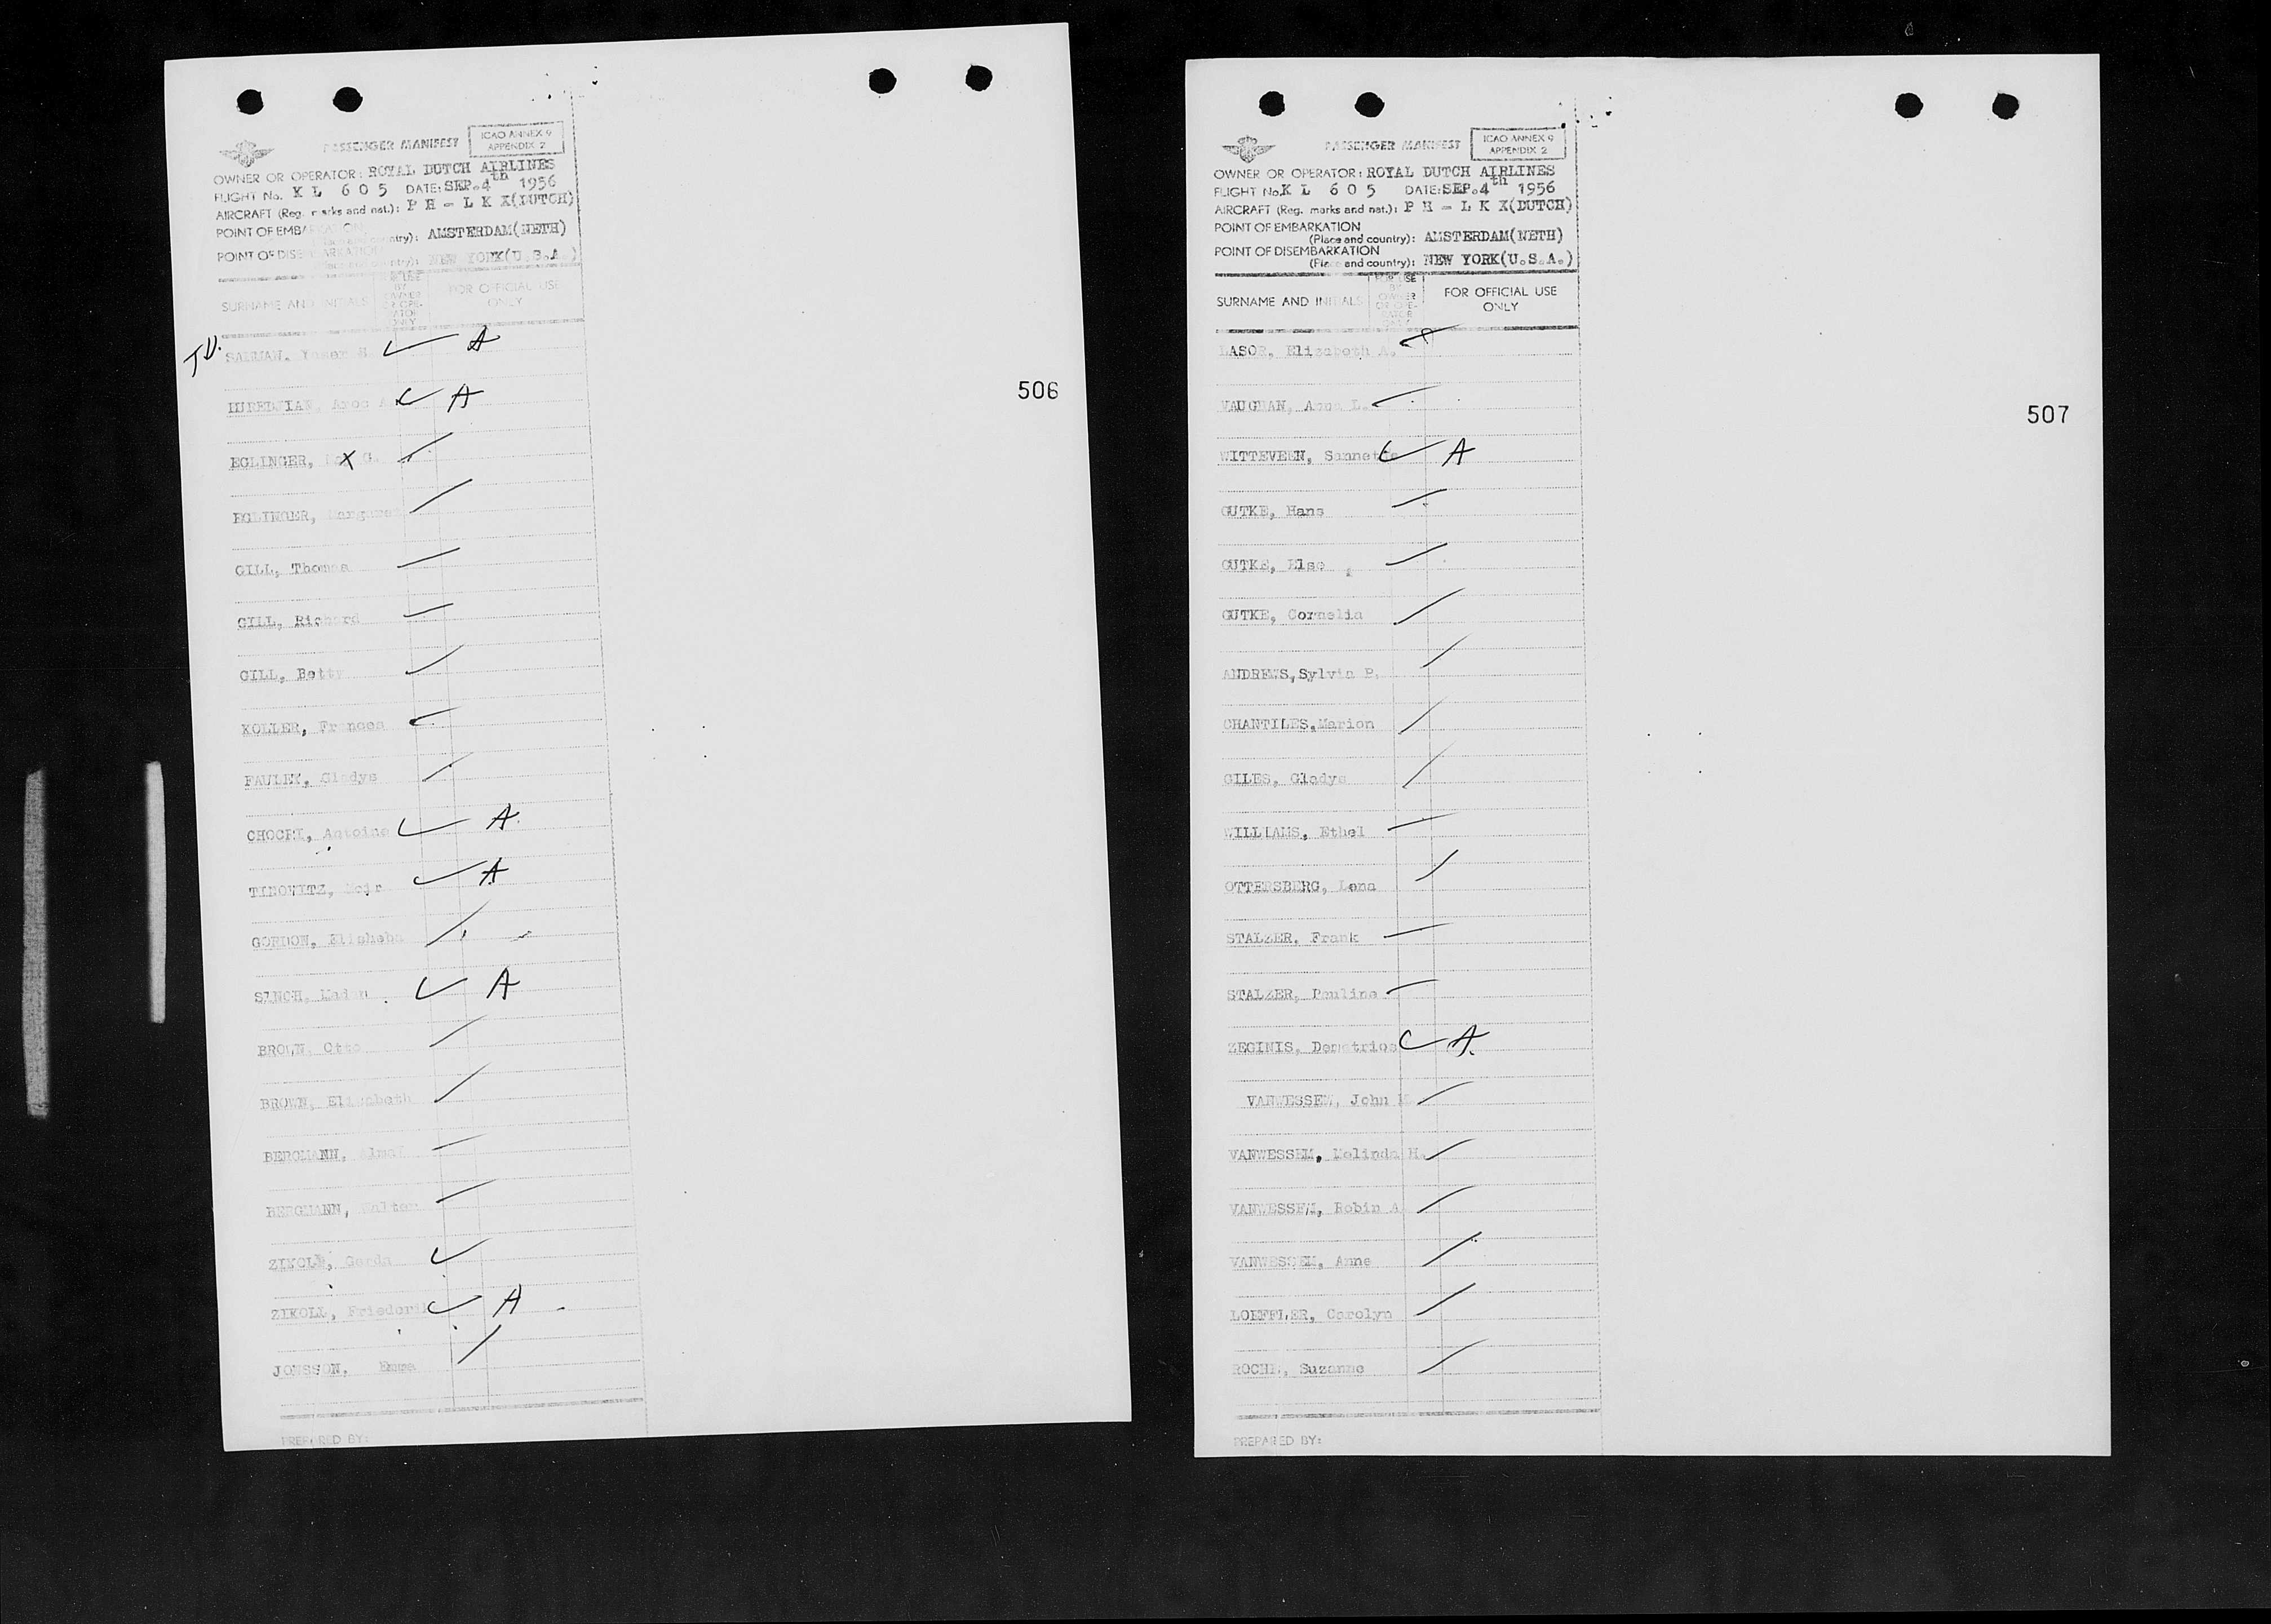 PASSENGER MANIFEST
ICAO ANNEX 9
APPENDIX 2
OWNER OR OPERATOR: ROYAL DUTCH AIRLINES
FLIGHT No. K L 6 0 5 DATE: SEP. 4th 1956
AIRCRAFT (Reg. marks and nat.): P H - L K X(DUTCH)
POINT OF EMBARKATION
(Place and country): AMSTERDAM(NETH)
POINT OF DISEMBARKATION
(Place and country): NEW YORK(U.S.A.)
SURNAME AND INITIALS
FOR USE
BY
OWNER
OR OPE-
RATOR
ONLY
FOR OFFICIAL USE
ONLY
A
A
506
EGLINGER, G.
EGLINGER,
GILL, Thomas
GILL, Richard
GILL, Betty
KOLLER, Frances
PAULEY, Gladys
Antoine A
A
GORDON, Elisheba
SINGH, Madan A
BROWN, Otto
BROWN, Elizabeth
BERGMANN,
BERGMANN, Walter
Gerda
A
JONSSON, Emma
PREPARED BY:
PASSENGER MANIFEST
ICAO ANNEX 9
APPENDIX 2
OWNER OR OPERATOR: ROYAL DUTCH AIRLINES
FLIGHT No. K L 6 0 5 DATE: SEP. 4th 1956
AIRCRAFT (Reg. marks and nat.): P H - L K X(DUTCH)
POINT OF EMBARKATION
(Place and country): AMSTERDAM(NETH)
POINT OF DISEMBARKATION
(Place and country): NEW YORK(U.S.A.)
SURNAME AND INITIALS
FOR USE
BY
OWNER
OR OPE-
RATOR
ONLY
FOR OFFICIAL USE
ONLY
LASOR, Elizabeth A.
VAUGHAN, Anna L.
507
WITTEVEEN, Sannetje A
GUTKE, Hans
GUTKE, Else
GUTKE, Cornelia
ANDREWS,Sylvia P.
CHANTILES,Marion
GILES, Gladys
WILLIAMS, Ethel
OTTERSBERG, Lena
STALZER, Frank
STALZER, Pauline
ZEGINIS, Demetrios A
VANWESSEM, John
VANWESSEM, Melinda H.
VANWESSEM, Robin A
VANWESSEM, Anne
LOEFFLER, Carolyn
ROCHE, Suzanne
PREPARED BY: